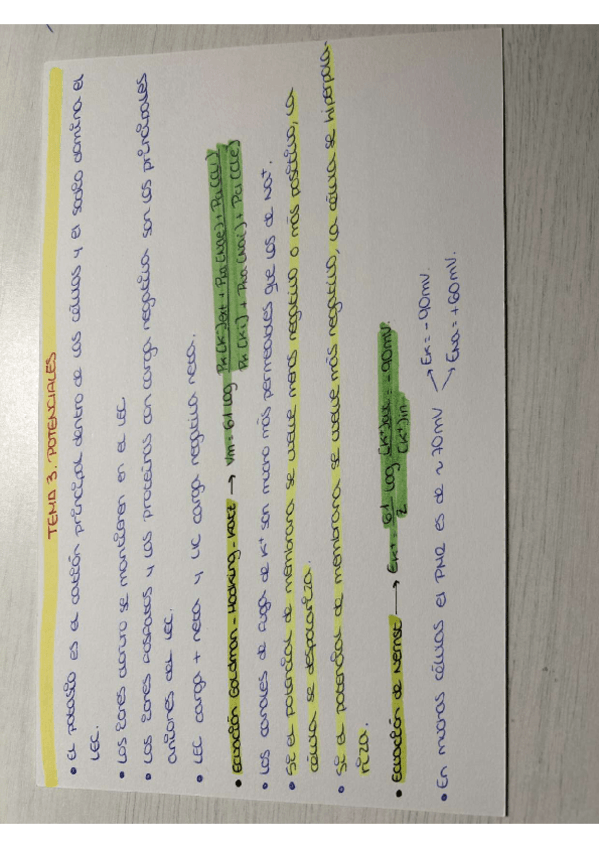 TEMA 3. POTENCIALES
• El potasio es el catión principal dentro de las células y el sodio domina el
LEC.
• Los iones cloruro se mantienen en el LEC
• Los iones fosfatos y las proteínas con carga negativa son los principales
aniones del LIC.
• LEC carga + neta y LIC carga negativa neta.
• Ecuación Goldman - Hodking - Katz → Vm = 61 log PK (K)ext + PNa (Nae) + PCl (Cli) / PK (Ki) + PNa (Nai) + PCl (Cle)
• Los canales de fuga de K+ son mucho más permeables que los de Na+.
• Si el potencial de membrana se vuelve menos negativo o más positivo, la
célula se despolariza.
• Si el potencial de membrana se vuelve más negativo, la célula se hiperpola-
riza.
• Ecuación de Nernst → EK+ = 61/z log [K+]out / [K+]in = -90mV.
• En muchas células el PMR es de ~ 70mV → EK = -90mV.
→ ENa = +60mV.